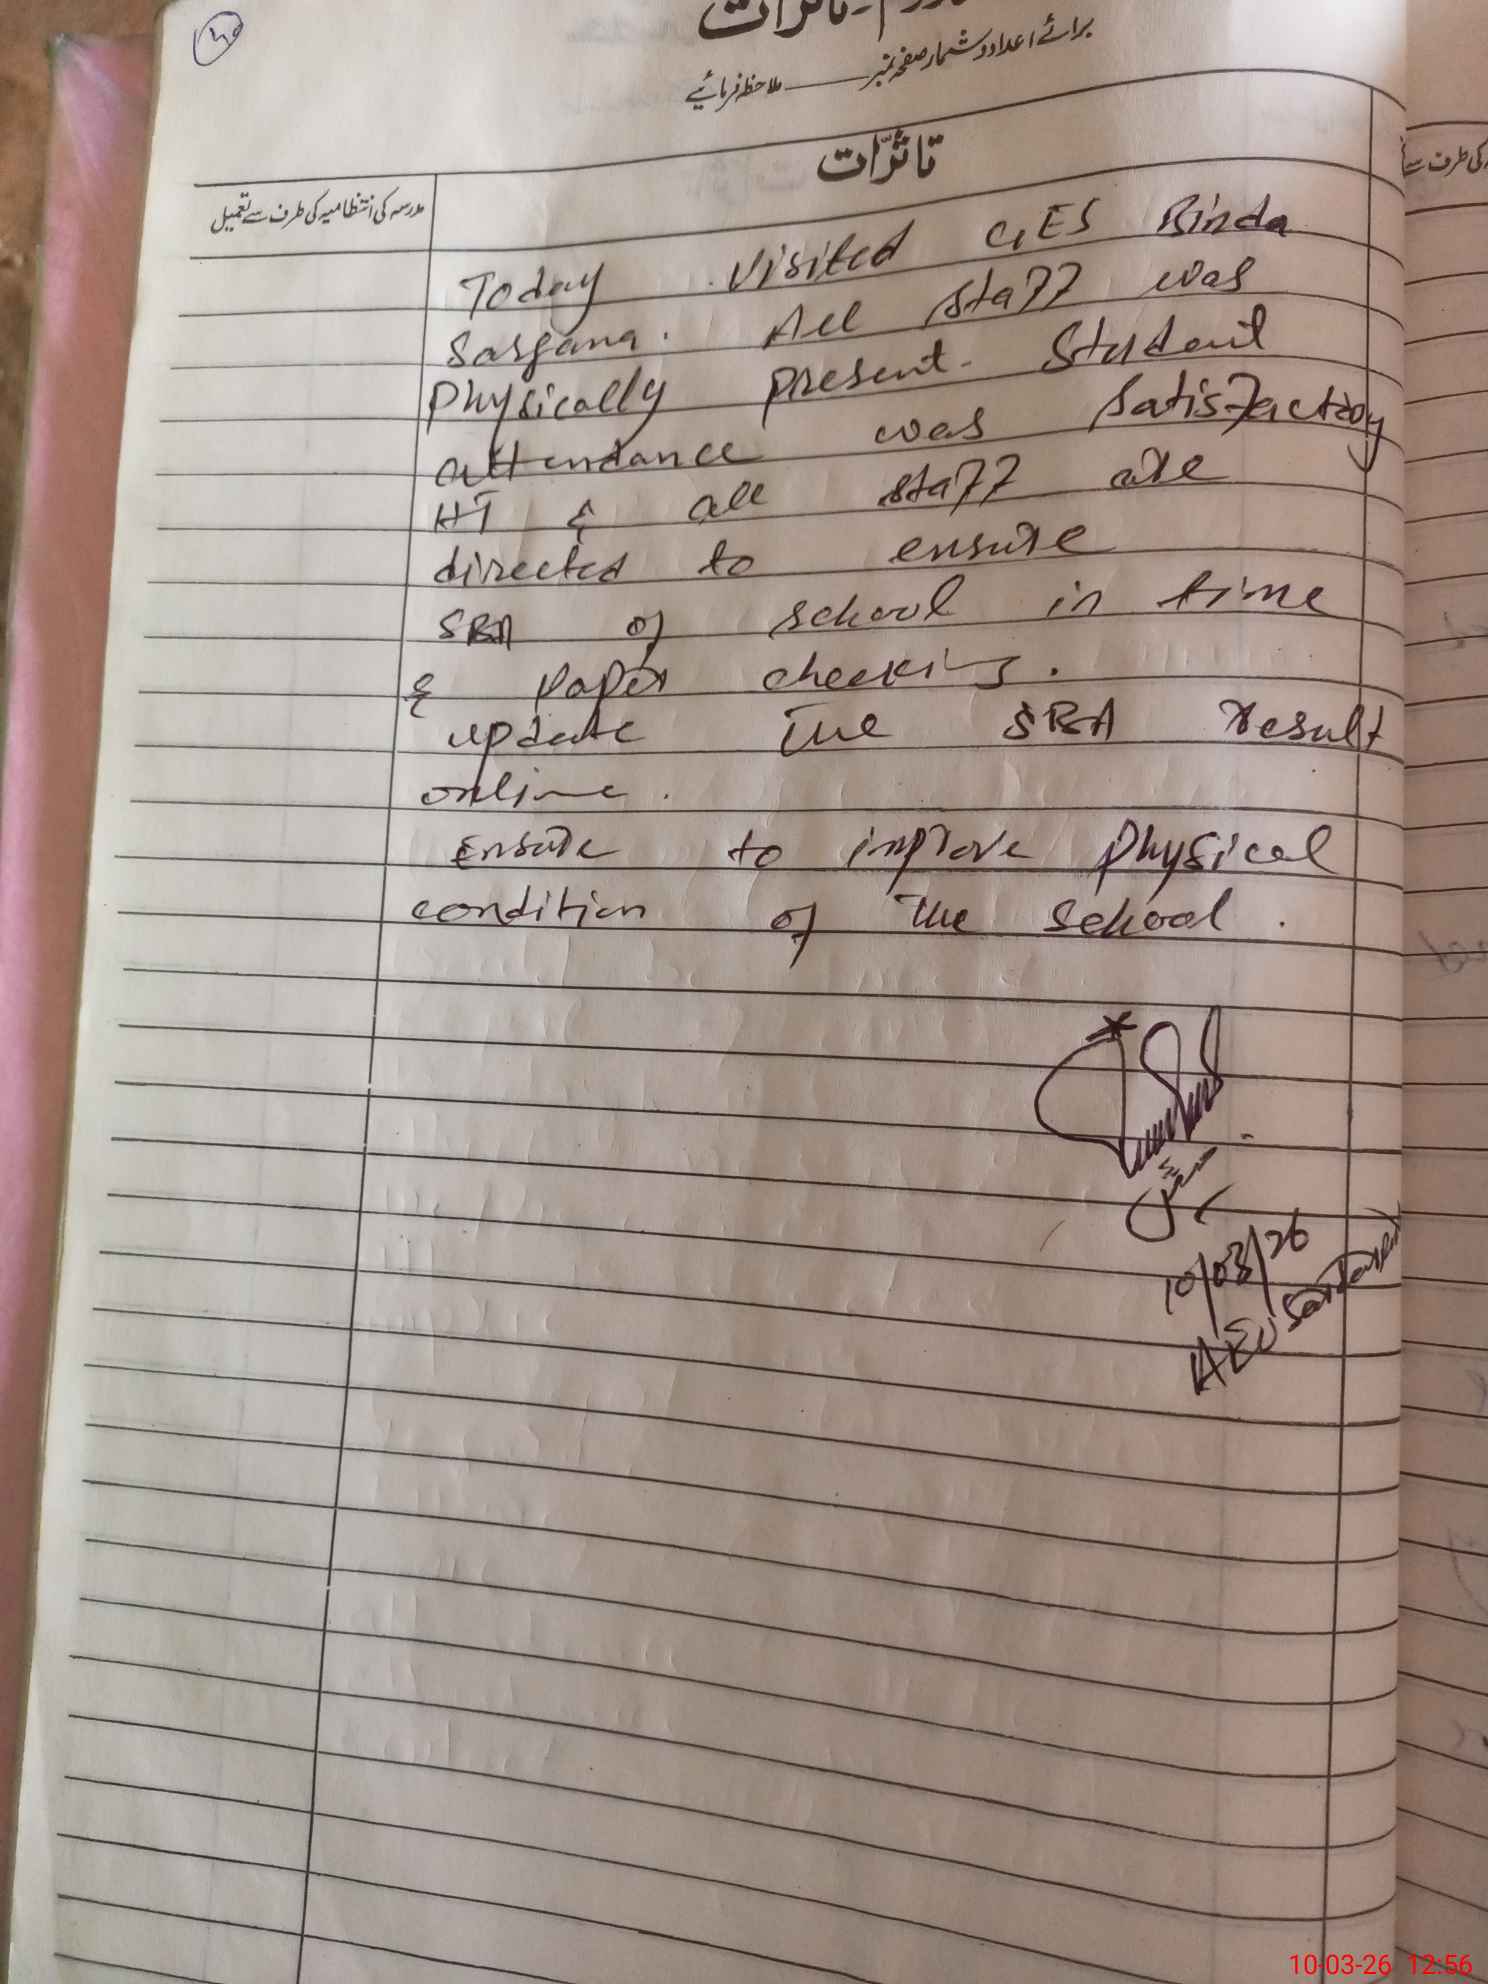 برائے اعداد و شمار صفحہ نمبر ——— ملاحظہ فرمائیے
تاثرات
مدرسہ کی انتظامیہ کی طرف سے تعمیل
Today visited GES Binda
Sargana. All staff was
Physically present. Student
attendance was satisfactory
HT & all staff are
directed to ensure
SBA of school in time
& paper checking.
update The SBA result
online.
Ensure to improve Physical
condition of The school.
10/03/26
AEO
10-03-26 12:56